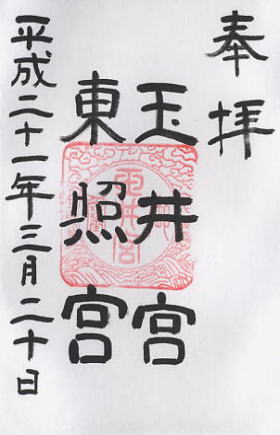 奉拝
玉井宮
東照宮
平成二十一年三月二十日